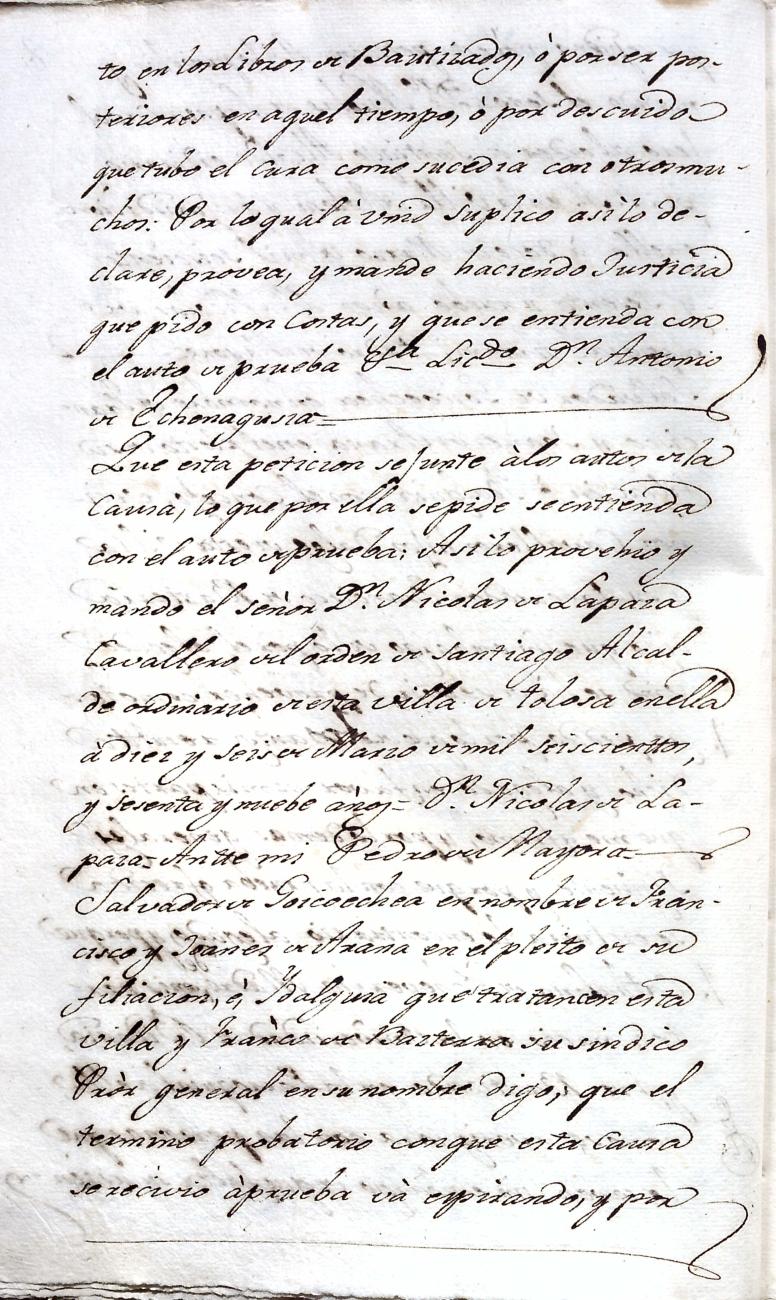 to en los Libros de Bautizados, ò por ser pos-
teriores en aquel tiempo, ò por descuido
que tubo el Cura como sucedia con otros mu-
chos: Por lo qual à Vmd suplico asi lo de-
clare, provea, y mande haciendo Justicia
que pido con Costas, y que se entienda con
el auto de prueba &ca Licdo Dn Antonio
de Echenagusia=
Que esta peticion se junte à los autos de la
Causa, lo que por ella se pide se entienda
con el auto de prueba; Asi lo provehio y
mando el señor Dn Nicolas de Lapaza
Cavallero del orden de Santiago Alcal-
de ordinario de esta villa de tolosa en ella
à diez y seis de Marzo de mil seiscientos,
y sesenta y nuebe años= Dn Nicolas de La-
paza= Ante mi Pedro de Mayora
Salvador de Goicoechea en nombre de Fran-
cisco y Joanes de Arana en el pleito de su
filiacion, é, Ydalguia que tratan con esta
villa y Franco de Basterra su sindico
Pròr general en su nombre digo, que el
termino probatorio conque esta Causa
se recivio à prueba và espirando, y por